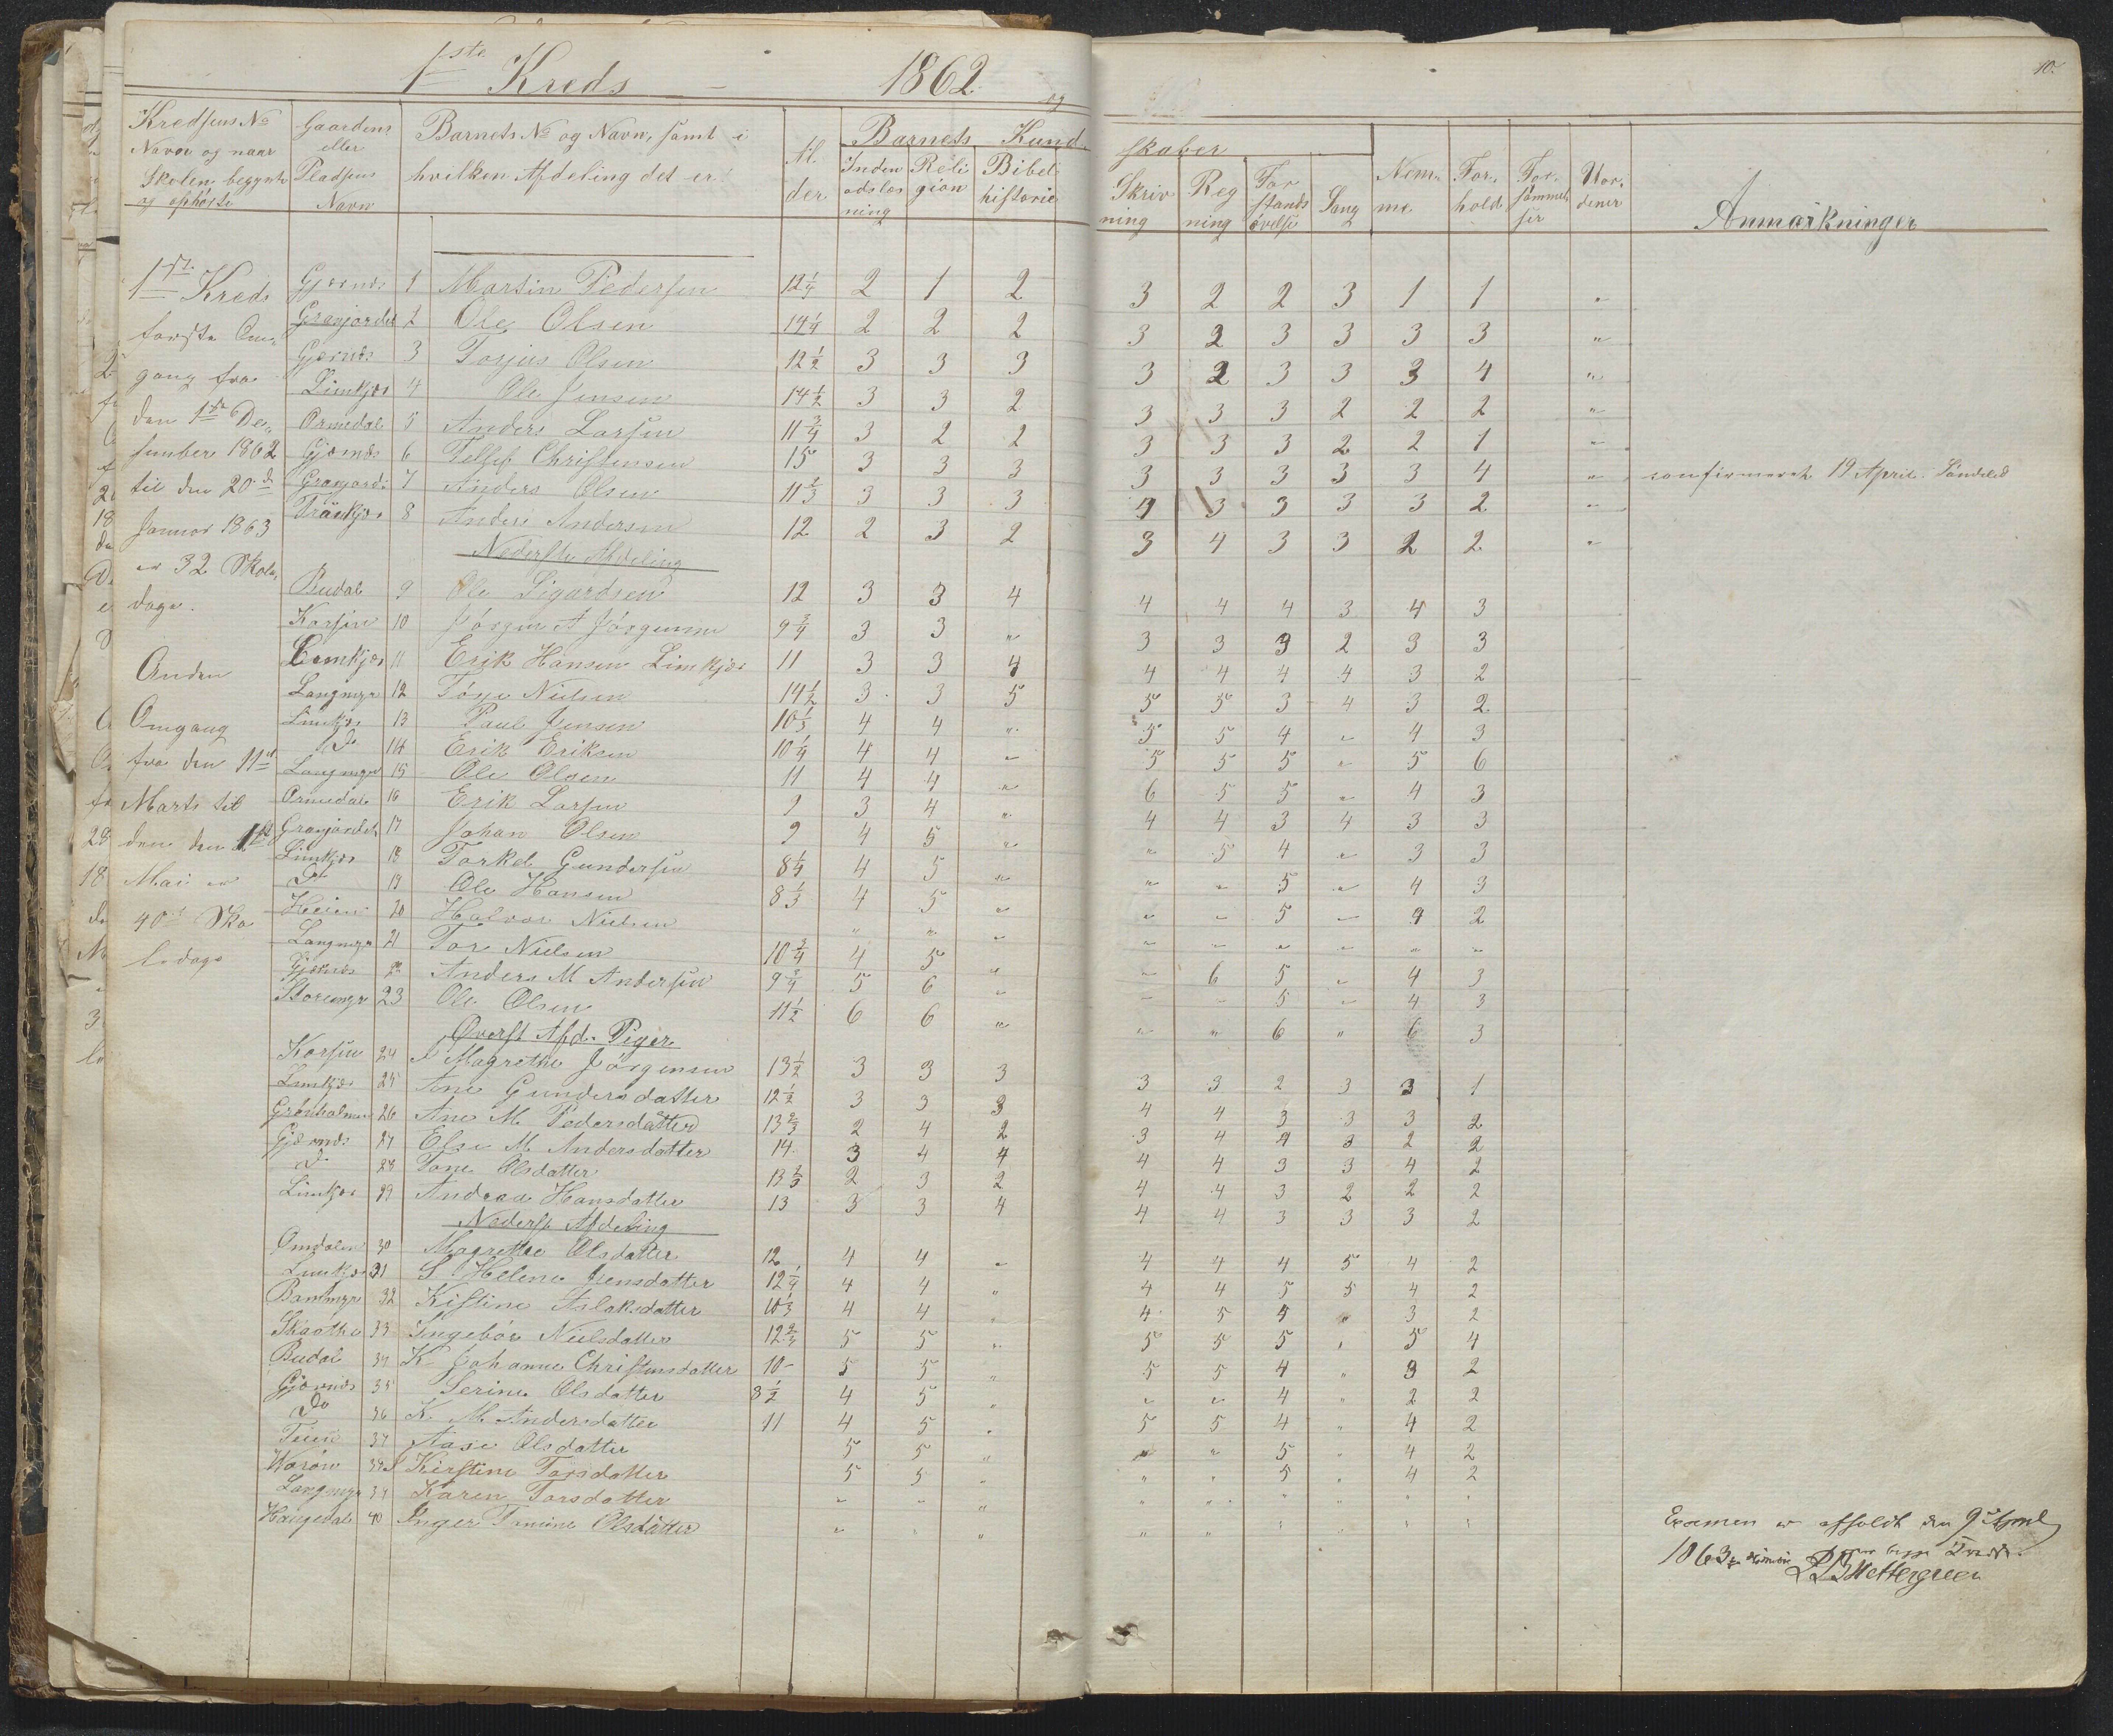 1ste Kreds 1862 og
10.
Kredsens No Navn og naar Skolen begynte og ophørte
Gaardens eller Pladsens Navn
Barnets No og Navn, samt i hvilken Afdeling det er
Alder
Barnets Kundskaber
Indenadslæsning Religion Bibelhistorie Skrivning Regning Forstandsøvelse Sang Nemme Forhold Forsømmelser Anmærkninger
1ste Kreds
første Om-
gang fra
den 1ste De-
sember 1862
til den 20de
Januar 1863
er 32 Skole-
dage.
Anden
Omgang
fra den 11te
Marts til
den den 1ste
Mai er
40 Sko
ledage
Gjernes 1 Martin Pedersen 12 1/4 2 1 2 3 2 2 3 1 1 "
Grevjordet 2 Ole Olsen 14 1/4 2 2 2 3 2 3 3 3 3 "
Gjernes 3 Torjus Olsen 12 1/2 3 3 3 3 2 3 3 3 4 "
Limkjær 4 Ole Jensen 14 1/2 3 3 2 3 3 3 2 2 2 "
Ormedal 5 Anders Larsen 11 3/4 3 2 2 3 3 3 2 2 1 "
Gjernes 6 Tellef Christensen 15 3 3 3 3 3 3 3 3 4 " confirmeret 19 April Søndeled
7 Anders Olsen 11 2/3 3 3 3 3 3 3 3 3 2 "
8 Anders Andersen 12 2 3 2 3 4 3 3 2 2 "
Nederste Afdeling
Budal 9 Ole Sigurdsen 12 3 3 4 4 4 4 3 4 3
Korsen 10 Jörgen A Jörgensen 9 3/4 3 3 " 3 3 3 2 3 3
Limkjær 11 Erik Hansen Limkjær 11 3 3 4 4 4 4 4 3 2
Langmyr 12 Nielsen 14 1/2 3 3 5 5 5 3 4 3 2
Limkjær 13 Paul Jensen 10 1/3 4 4 " 5 5 4 " 4 3
Do 14 Erik Eriksen 10 1/4 4 4 " 5 5 5 " 5 6
Langmyr 15 Ole Olsen 11 4 4 " 6 5 5 " 4 3
Ormedal 16 Erik Larsen 9 3 4 " 4 4 3 4 3 3
Grevjordet 17 Johan Olsen 9 4 5 " " 5 4 " 3 3
Limkjær 18 Torkel Gundersen 8 1/4 4 5 " " " 5 " 4 3
Do 19 Ole Hansen 8 1/3 4 5 " " " 5 " 4 2
Heien 20 Halvor Nielsen " " " " " " " " "
Langmyr 21 Tor Nielsen 10 3/4 4 5 " " 6 5 " 4 3
Gjernes 22 Anders M Andersen 9 3/4 5 6 " " " 5 " 4 3
Storemyr 23 Ole Olsen 11 1/2 6 6 " " " 6 " 6 3
Øverst Afd. Piger
Korsen 24 Magrethe Jörgensen 13 1/2 3 3 3 3 3 2 3 3 1
Limkjær 25 Ane Gundersdatter 12 1/2 3 3 3 4 4 3 3 3 2
Grønholmen 26 Ane M. Pedersdatter 13 2/3 2 4 2 3 4 4 3 2 2
Gjernes 27 Else M. Andersdatter 14 3 4 4 4 4 3 3 4 2
Do 28 Tone Olsdatter 13 2/3 2 3 2 4 4 3 2 2 2
Limkjær 29 Andrea Hansdatter 13 3 3 4 4 4 3 3 3 2
Nederst Afdeling
Omdalen 30 Magrethe Olsdatter 12 4 4 " 4 4 4 5 4 2
Limkjær 31 S. Helene Jensdatter 12 1/4 4 4 " 4 4 5 5 4 2
32 Kistine Aslaksdatter 10 1/3 4 4 " 4 5 4 " 3 2
33 Ingebör Nielsdatter 12 2/3 5 5 " 5 5 5 " 5 4
Budal 34 K Johanne Christensdatter 10 - 5 5 " 5 5 4 " 3 2
Gjernes 35 Serine Olsdatter 8 1/2 4 5 " " " 4 " 2 2
Do 36 K. M. Andersdatter 11 4 5 " 5 5 4 " 4 2
37 Aase Olsdatter 5 5 " " " 5 " 4 2
Kirstine Torsdatter 5 5 " " " 5 " 4 2
Langmyr 39 Karen Torsdatter " " " " " " " " "
Haugedal 40 Inger Tomine Olsdatter " " " " " " " " "
Examen er afholdt den 9de April
1863
Wettergreen